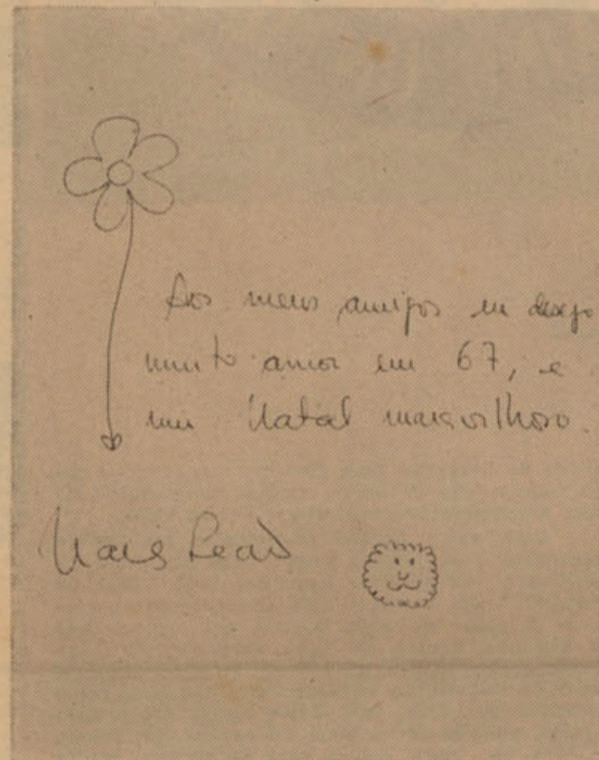 Aos meus amigos eu desejo
muito amor em 67, e
um Natal maravilhoso.
Nara Leão